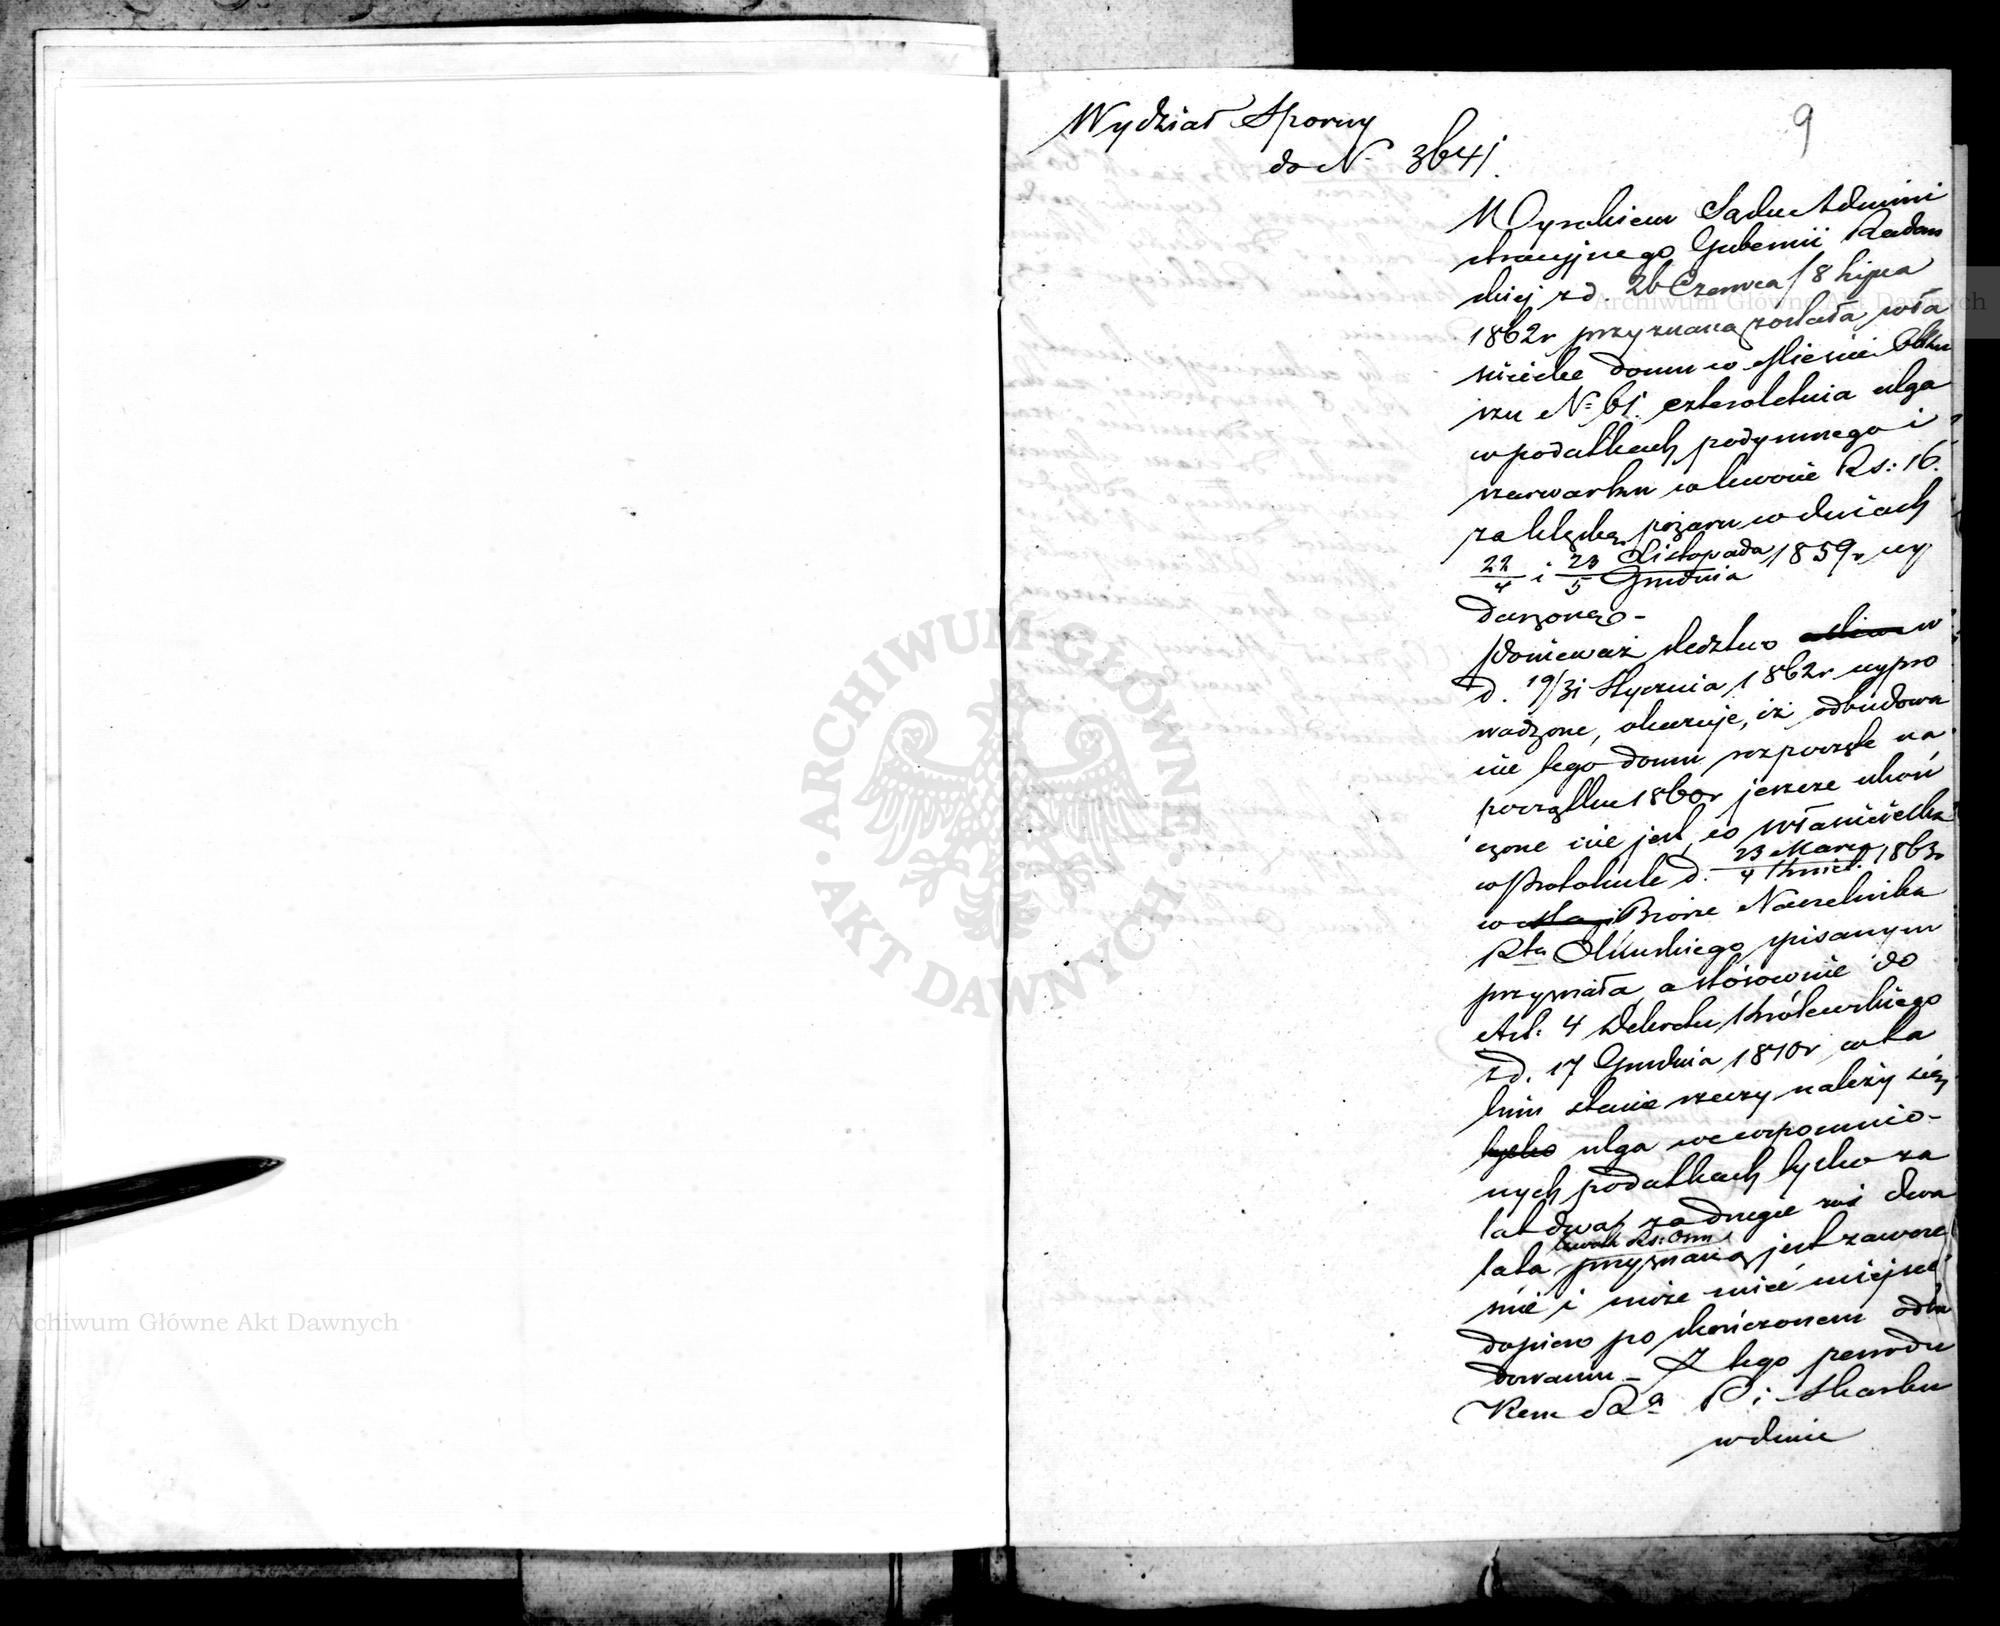 Wydział Sporny
do N 3641.
9
Wyrokiem Sądu Admini
stracyjnego Gubernii Radom
skiej z d. 26 Czerwca / 8 Lipca
1862r przyznaną została wła
ścicielce domu w Mieście Olku
szu N= 61. czteroletnia ulga
w podatkach podymnego i
szarwarku w kwocie Rs: 16.
za klęskę pożaru w dniach
22/4 i 23/5 Listopada/Grudnia 1859r wy
darzonego -
Ponieważ śledztwo w
d. 19/31 Stycznia 1862r wypro
wadzone, okazuje, iż odbudowa
nie tego domu rozpoczęte na
początku 1860r jeszcze ukoń
czone nie jest, co właścicielka
w Protokule d. 23 Marca/4 Kwiet. 1863r
w Biórze Naczelnika
Ptu Olkuskiego spisanym
przyznała, a stósownie do
Art: 4 Dekretu Królewskiego
z d. 17 Grudnia 1810r w ta
kim stanie rzeczy należy się
tylko ulga we wspomnio-
nych podatkach tylko za
lat dwa, za drugie zaś dwa
kwota Rs: Osm
lata przyznaną jest zawcze
śnie i może mieć miejsce
dopiero po skończonem odbu
dowaniu - Z tego powodu
Kom Ra P. i Skarbu
w dniu
Archiwum Główne Akt Dawnych
ARCHIWUM GŁÓWNE • AKT DAWNYCH •
Archiwum Główne Akt Dawnych